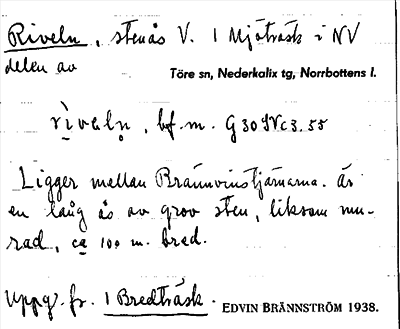 Riveln, stenås V. 1 Mjöträsk i NV
delen av
Töre sn, Nederkalix tg, Norrbottens l.
rìvəln̥, bf. m. G30 SVc3.55
Ligger mellan Brännvinstjärnarna. är
en lång ås av grov sten, liksom mu-
rad, ca 100 m. bred.
Uppg. fr. 1 Bredträsk.
EDVIN BRÄNNSTRÖM 1938.